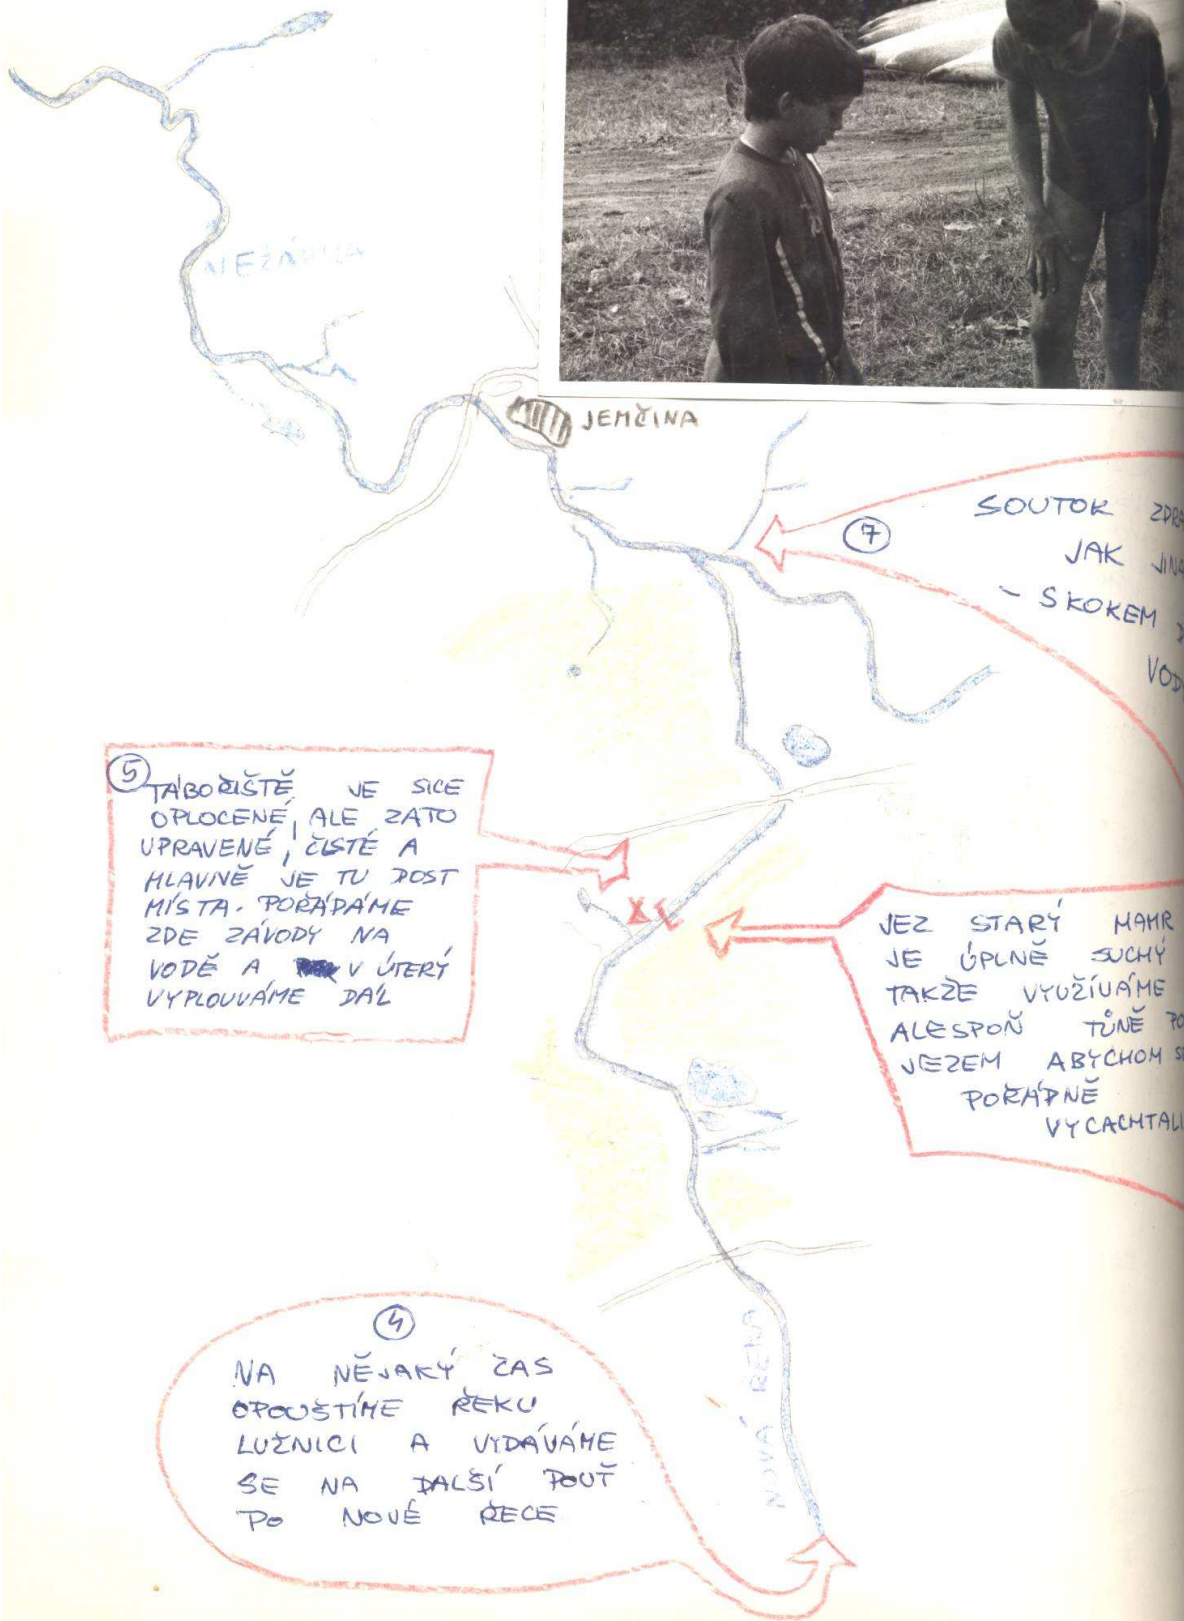 NEŽÁRKA
JEMČINA
7
SOUTOK
JAK
- SKOKEM
5
TÁBOŘIŠTĚ JE SICE
OPLOCENÉ, ALE ZATO
UPRAVENÉ, ČISTÉ A
HLAVNĚ JE TU DOST
MÍSTA. POŘÁDÁME
ZDE ZÁVODY NA
VODĚ A V ÚTERÝ
VYPLOUVÁME DÁL
JEZ STARÝ HAMR
JE ÚPLNĚ SUCHÝ
TAKŽE VYUŽÍVÁME
ALESPOŇ TŮNĚ
JEZEM ABYCHOM
POŘÁDNĚ
VYCACHTALI
4
NA NĚJAKÝ ČAS
OPOUŠTÍME ŘEKU
LUŽNICI A VYDÁVÁME
SE NA DALŠÍ POUŤ
PO NOVÉ ŘECE
NOVÁ ŘEKA